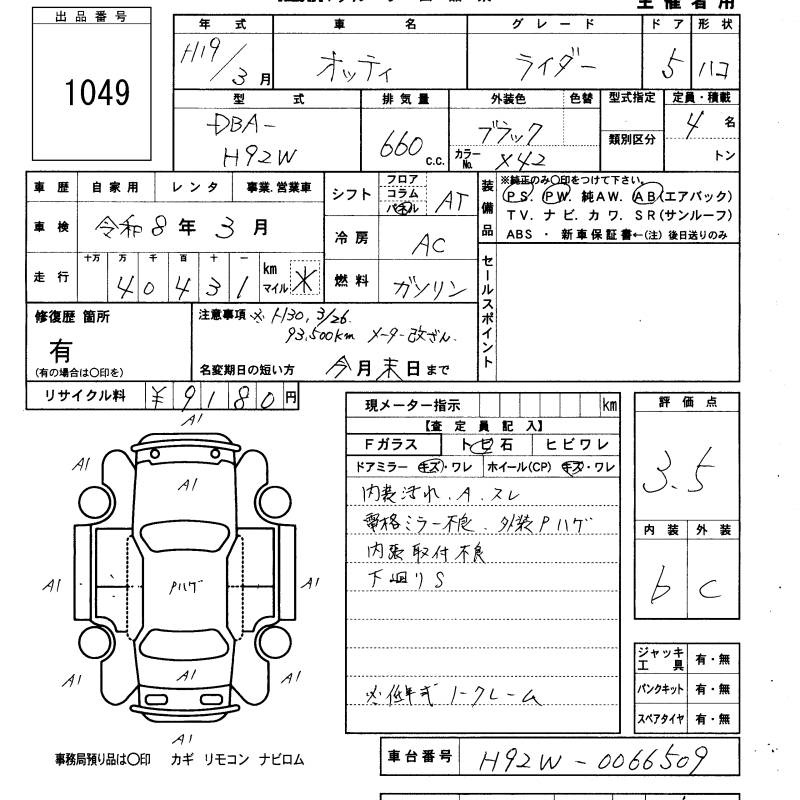 主催者用
出品番号
1049
年式 車名 グレード ドア 形状
H19/3月 オッティ ライダー 5 ハコ
型式 排気量 外装色 色替 型式指定 定員・積載
DBA- 660 c.c. ブラック 4名
H92W カラーNo. X42 類別区分 トン
車歴 自家用 レンタ 事業.営業車
車検 令和8年3月
走行 十万 万 千 百 十 一 km マイル
40431 ※
シフト フロア コラム パネル AT
冷房 AC
燃料 ガソリン
装備品
※純正のみ〇印をつけて下さい。
PS. PW. 純AW. AB(エアバック)
TV. ナビ. カワ. SR(サンルーフ)
ABS . 新車保証書←(注) 後日送りのみ
セールスポイント
修復歴 箇所
有
(有の場合は〇印を)
注意事項 ※ H30, 3/26.
93,500km メーター改ざん.
名変期日の短い方 今月末日まで
リサイクル料 ¥9180円
現メーター指示 km
【査定員記入】
Fガラス トビ石 ヒビワレ
ドアミラー キズ・ワレ ホイール(CP) キズ・ワレ
内装汚れ. A. スレ
電格ミラー不良. 外装Pハゲ
内張取付不良
下廻りS
※低年式ノークレーム
評価点
3.5
内装 外装
b C
ジャッキ工具 有・無
パンクキット 有・無
スペアタイヤ 有・無
A1
A1 A1 A1
A1 Pハゲ A1
A1 A1 A1
A1
事務局預り品は〇印 カギ リモコン ナビロム
車台番号 H92W-0066509